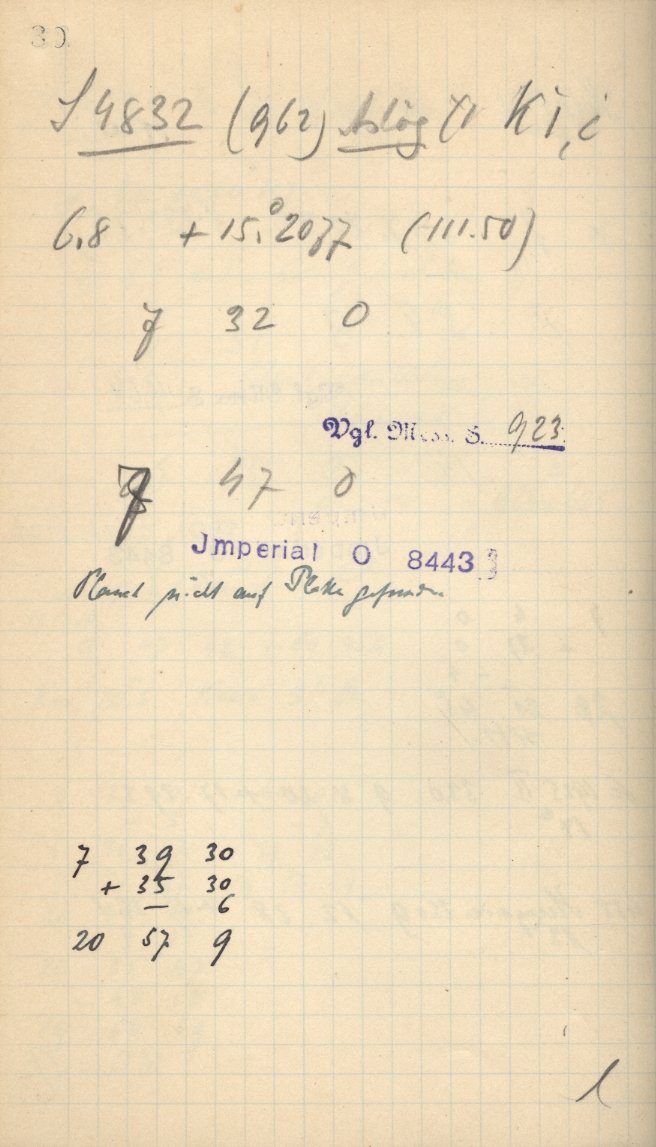 30
S 4832 (962) Aslög XI Ki, i
6,8 + 15,°2077 (111.50)
7 32 0
Vgl. Mess. S. 923
7 47 0
Jmperial O 8443
Planet nicht auf Platte gefunden
7 39 30
+ 35 30
— 6
20 57 9